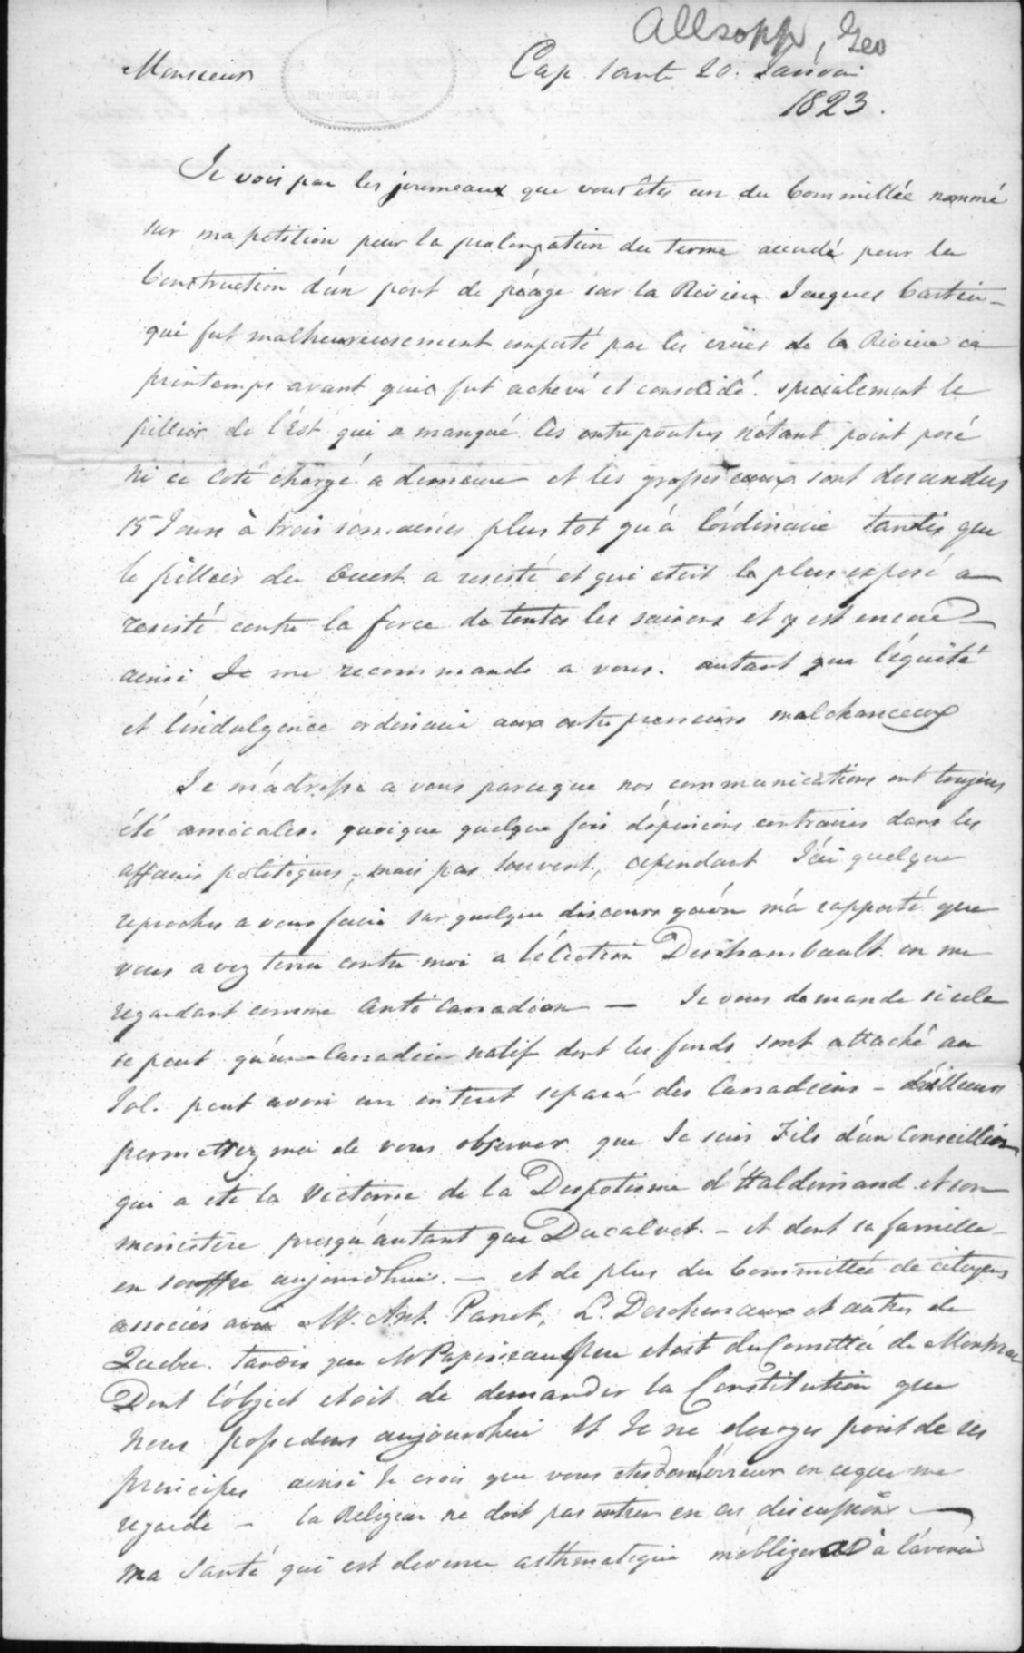 Allsopp, Geo
Monsieur Cap Santé 20. Janvier
1823.
Je vois par les journeaux que vous êtes un du Committée nommé
sur ma petition pour la prolongation du terme accordé pour la
Construction d'un pont de péage sur la Riviere Jacques Cartier –
qui fut malheureusement emporté par les crües de la Riviere ce
printemps avant qu'il fut achevé et consolidé. specialement le
pillier de l'Est qui a manqué. les entrepoutres n'étant point posé
ni ce Coté chargé a demeure et les grosses eaux sont descendus
15 Jours à trois semaines plus tot qu'à l'ordinaire tandis que
le pillier du Ouest a resisté et qui etoit le plus exposé a
resisté contre la force de toutes les saisons et y est encore –
ainsi Je me recommande a vous. autant que l'équité
et l'indulgence ordinaire aux entrepreneurs malchanceux
Je m'adresse a vous parceque nos communications ont toujours
été amicales. quoique quelque fois d'opinions contraires dans les
affaires politiques, mais pas souvent, cependant J'ai quelque
reproches a vous faire sur quelque discours qu'on m'a rapporté que
vous avez tenu contre moi a l'élection Deschambault en me
regardant comme Anti Canadien — Je vous demande si cela
se peut qu'un Canadien natif dont les fonds sont attaché au
Sol. peut avoir un interet separé des Canadiens – d'ailleurs
permettez moi de vous observer que Je suis Fils d'un Conseiller
qui a eté la Victime de la Despotisme d'Haldimand et son
ministère presqu'autant que Ducalvet. – et dont sa famille
en souffre aujourdhui. — et de plus du Committée de citoyens
associés avec Mr. Ant. Panet, L. Descheneaux et autres de
Quebec. tandis que Mr Papineau Pere etoit du Comittée de Montreal
Dont l'object étoit de demander la Constitution que
nous possedons aujourdhui Et Je ne deroges point de ses
principes ainsi Je crois que vous etes dans l'erreur en ceque me
regarde – la Religion ne doit pas entrer en ces discussions —
Ma Santé qui est devenue asthmatique m'obligera à l'avenir